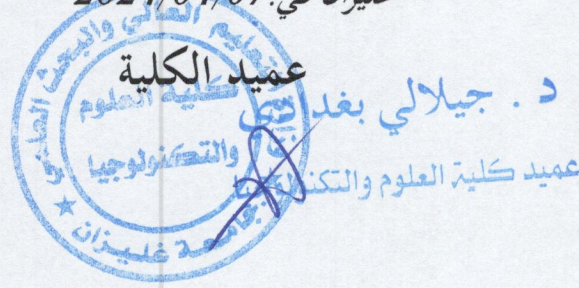 عميد الكلية
د. جيلالي بغدادي
عميد كلية العلوم والتكنولوجيا
التعليم العالي والبحث العلمي
كلية العلوم
والتكنولوجيا
جامعة غليزان